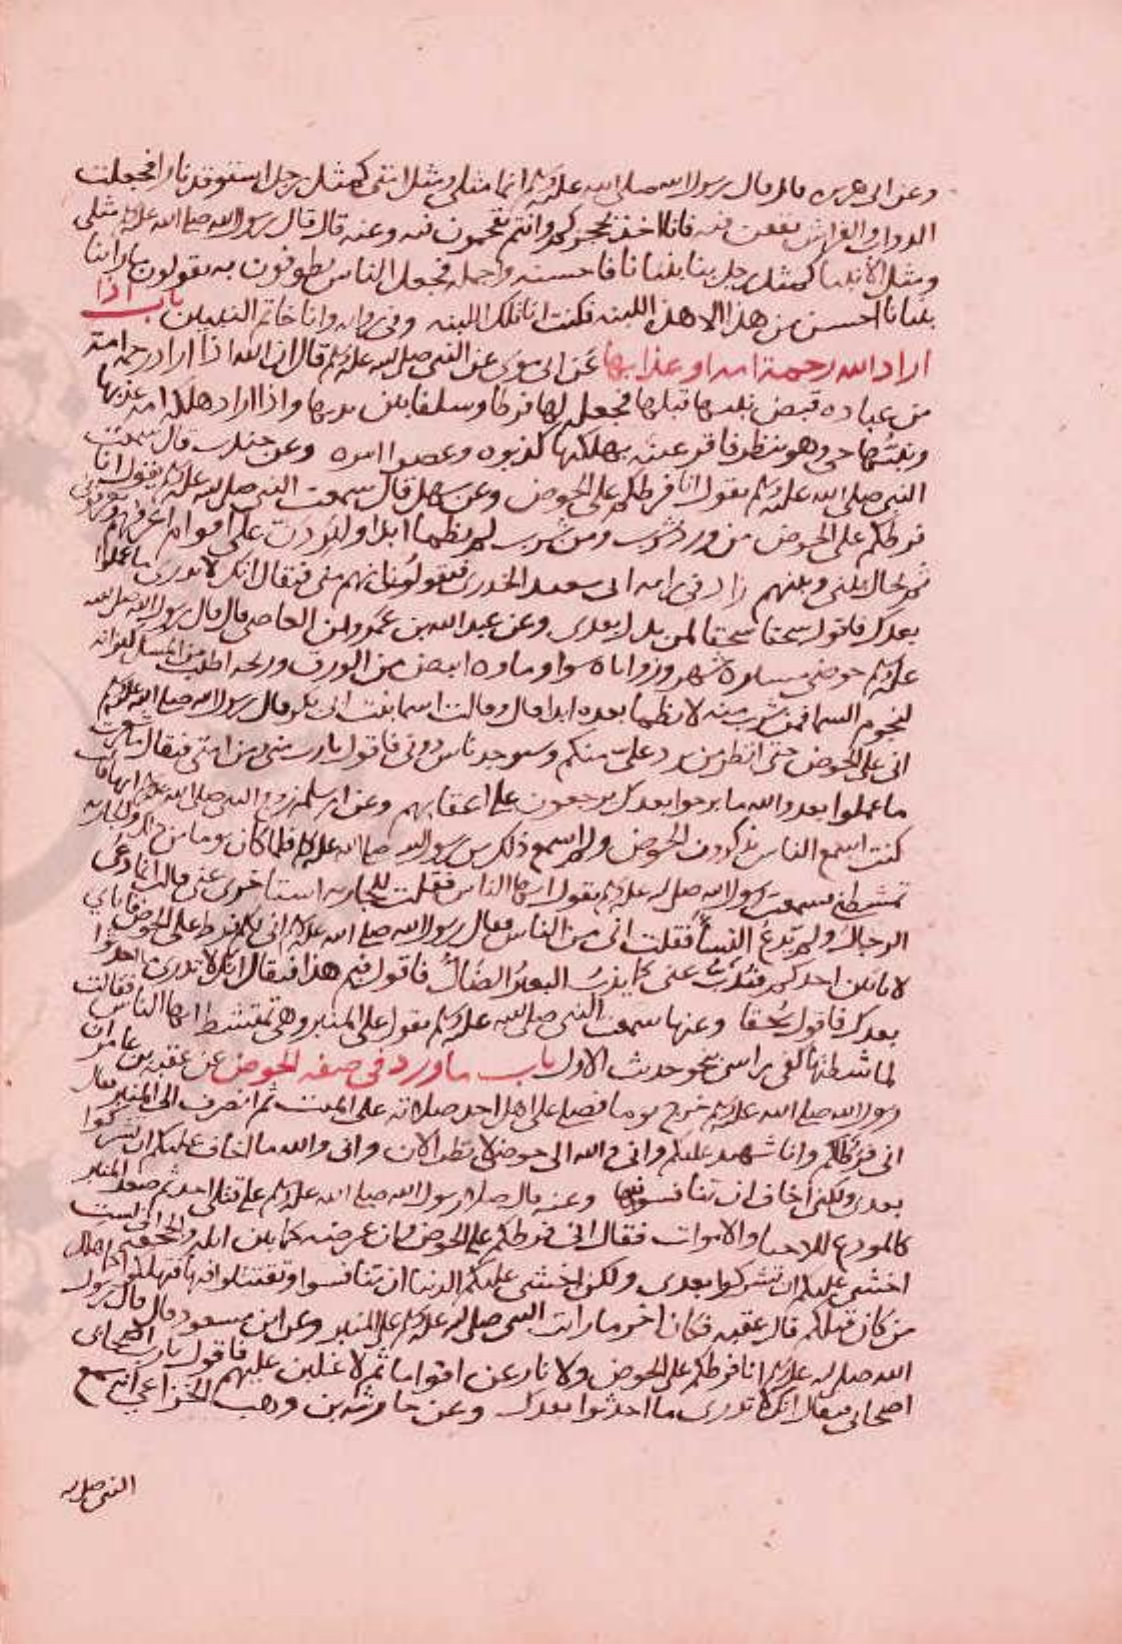 وعن ابى هريره قال قال رسول الله صلى الله عليه وسلم انما مثلى ومثل امتى كمثل رجل استوقد نارا فجعلت
الدواب والفراش يقعن فيه فانا اخذ بحجزكم وانتم تقحمون فيه وعنه قال قال رسول الله صلى الله عليه مثلى
ومثل الانبيا كمثل رجل بنا بنيانا فاحسنه واجمله فجعل الناس يطوفون به يقولون ما راينا
بنيانا احسن من هذا الا هذه اللبنه فكنت انا تلك اللبنه وفى روايه وانا خاتم النبيين باب اذا
اراد الله رحمة امه او عذابها عن ابى موسى عن النبى صلى الله عليه وسلم قال ان الله اذا اراد رحمة امة
من عباده قبض نبيها قبلها فجعله لها فرطا وسلفا بين يديها واذا اراد هلكة امه عذبها
ونبيها حى وهو ينظر فاقر عينه بهلكتها كذبوه وعصوا امره وعن جندب قال سمعت
النبى صلى الله عليه وسلم يقول انا فرطكم على الحوض وعن سهل قال سمعت النبى صلى الله عليه وسلم يقول انا
فرطكم على الحوض من ورد شرب ومن شرب لم يظما ابدا وليردن على اقوام اعرفهم ويعرفونى
ثم يحال بينى وبينهم زاد فى رايه ابى سعيد الخدرى فيقول انهم منى فيقال انك لا تدرى ما عملوا
بعدك فاقول سحقا سحقا لمن بدل بعدى وعن عبد الله بن عمرو بن العاصى قال قال رسول الله صلى الله
عليه وسلم حوضى مسيرة شهر وزواياه سوا وماوه ابيض من الورق وريحه اطيب من المسك كيزانه
كنجوم السما فمن شرب منه لا يظما بعده ابدا قال وقالت اسما بنت ابى بكر قال رسول الله صلى الله عليه وسلم
انى على الحوض حتى انظر من يرد على منكم وسيوخذ ناس دونى فاقول يارب منى ومن امتى فيقال اما شعرت
ما عملوا بعدك والله ما برحوا بعدك يرجعون على اعقابهم وعن ام سلمه زوج النبى صلى الله عليه وسلم انها قالت
كنت اسمع الناس يذكرون الحوض ولم اسمع ذلك من رسول الله صلى الله عليه وسلم فلما كان يوما من ذلك والجاريه
تمشطنى فسمعت رسول الله صلى الله عليه وسلم يقول ايها الناس فقلت للجاريه استاخرى عنى قالت انما دعى
الرجال ولم يدع النسا فقلت انى من الناس فقال رسول الله صلى الله عليه وسلم انى لكم فرط على الحوض فاياى
لا ياتين احدكم فيذب عنى كما يذب البعير الضال فاقول فيم هذا فيقال انك لا تدرى ما احدثوا
بعدك فاقول سحقا وعنها سمعت النبى صلى الله عليه وسلم يقول على المنبر وهى تمتشط ايها الناس فقالت
لماشطتها لفى راسى نحو حديث الاول باب ما ورد فى صفه الحوض عن عقبه بن عامر ان
رسول الله صلى الله عليه وسلم خرج يوما فصلى على اهل احد صلاته على الميت ثم انصرف الى المنبر فقال
انى فرطكم وانا شهيد عليكم وانى والله الى حوضى لانظر الان وانى والله ما اخاف عليكم ان تشركوا
بعدى ولكنى اخاف ان تنافسوا فيها وعنه قال صلى رسول الله صلى الله عليه وسلم على قتلى احد ثم صعد المنبر
كالمودع للاحيا والاموات فقال انى فرطكم على الحوض وان عرضه كما بين ايله والجحفه انى لست
اخشى عليكم ان تشركوا بعدى ولكن اخشى عليكم الدنيا ان تنافسوا وتقتتلوا فيها فتهلكوا كما هلك
من كان قبلكم قال عقبه فكان اخر ما رايت النبى صلى الله عليه وسلم على المنبر وعن ابن مسعود قال قال رسول
الله صلى الله عليه وسلم انا فرطكم على الحوض ولا نازعن اقواما ثم لاغلبن عليهم فاقول يارب اصحابى
اصحابى فيقال انك لا تدرى ما احدثوا بعدك وعن حارثه بن وهب الخزاعى انه سمع
النبى صلى الله